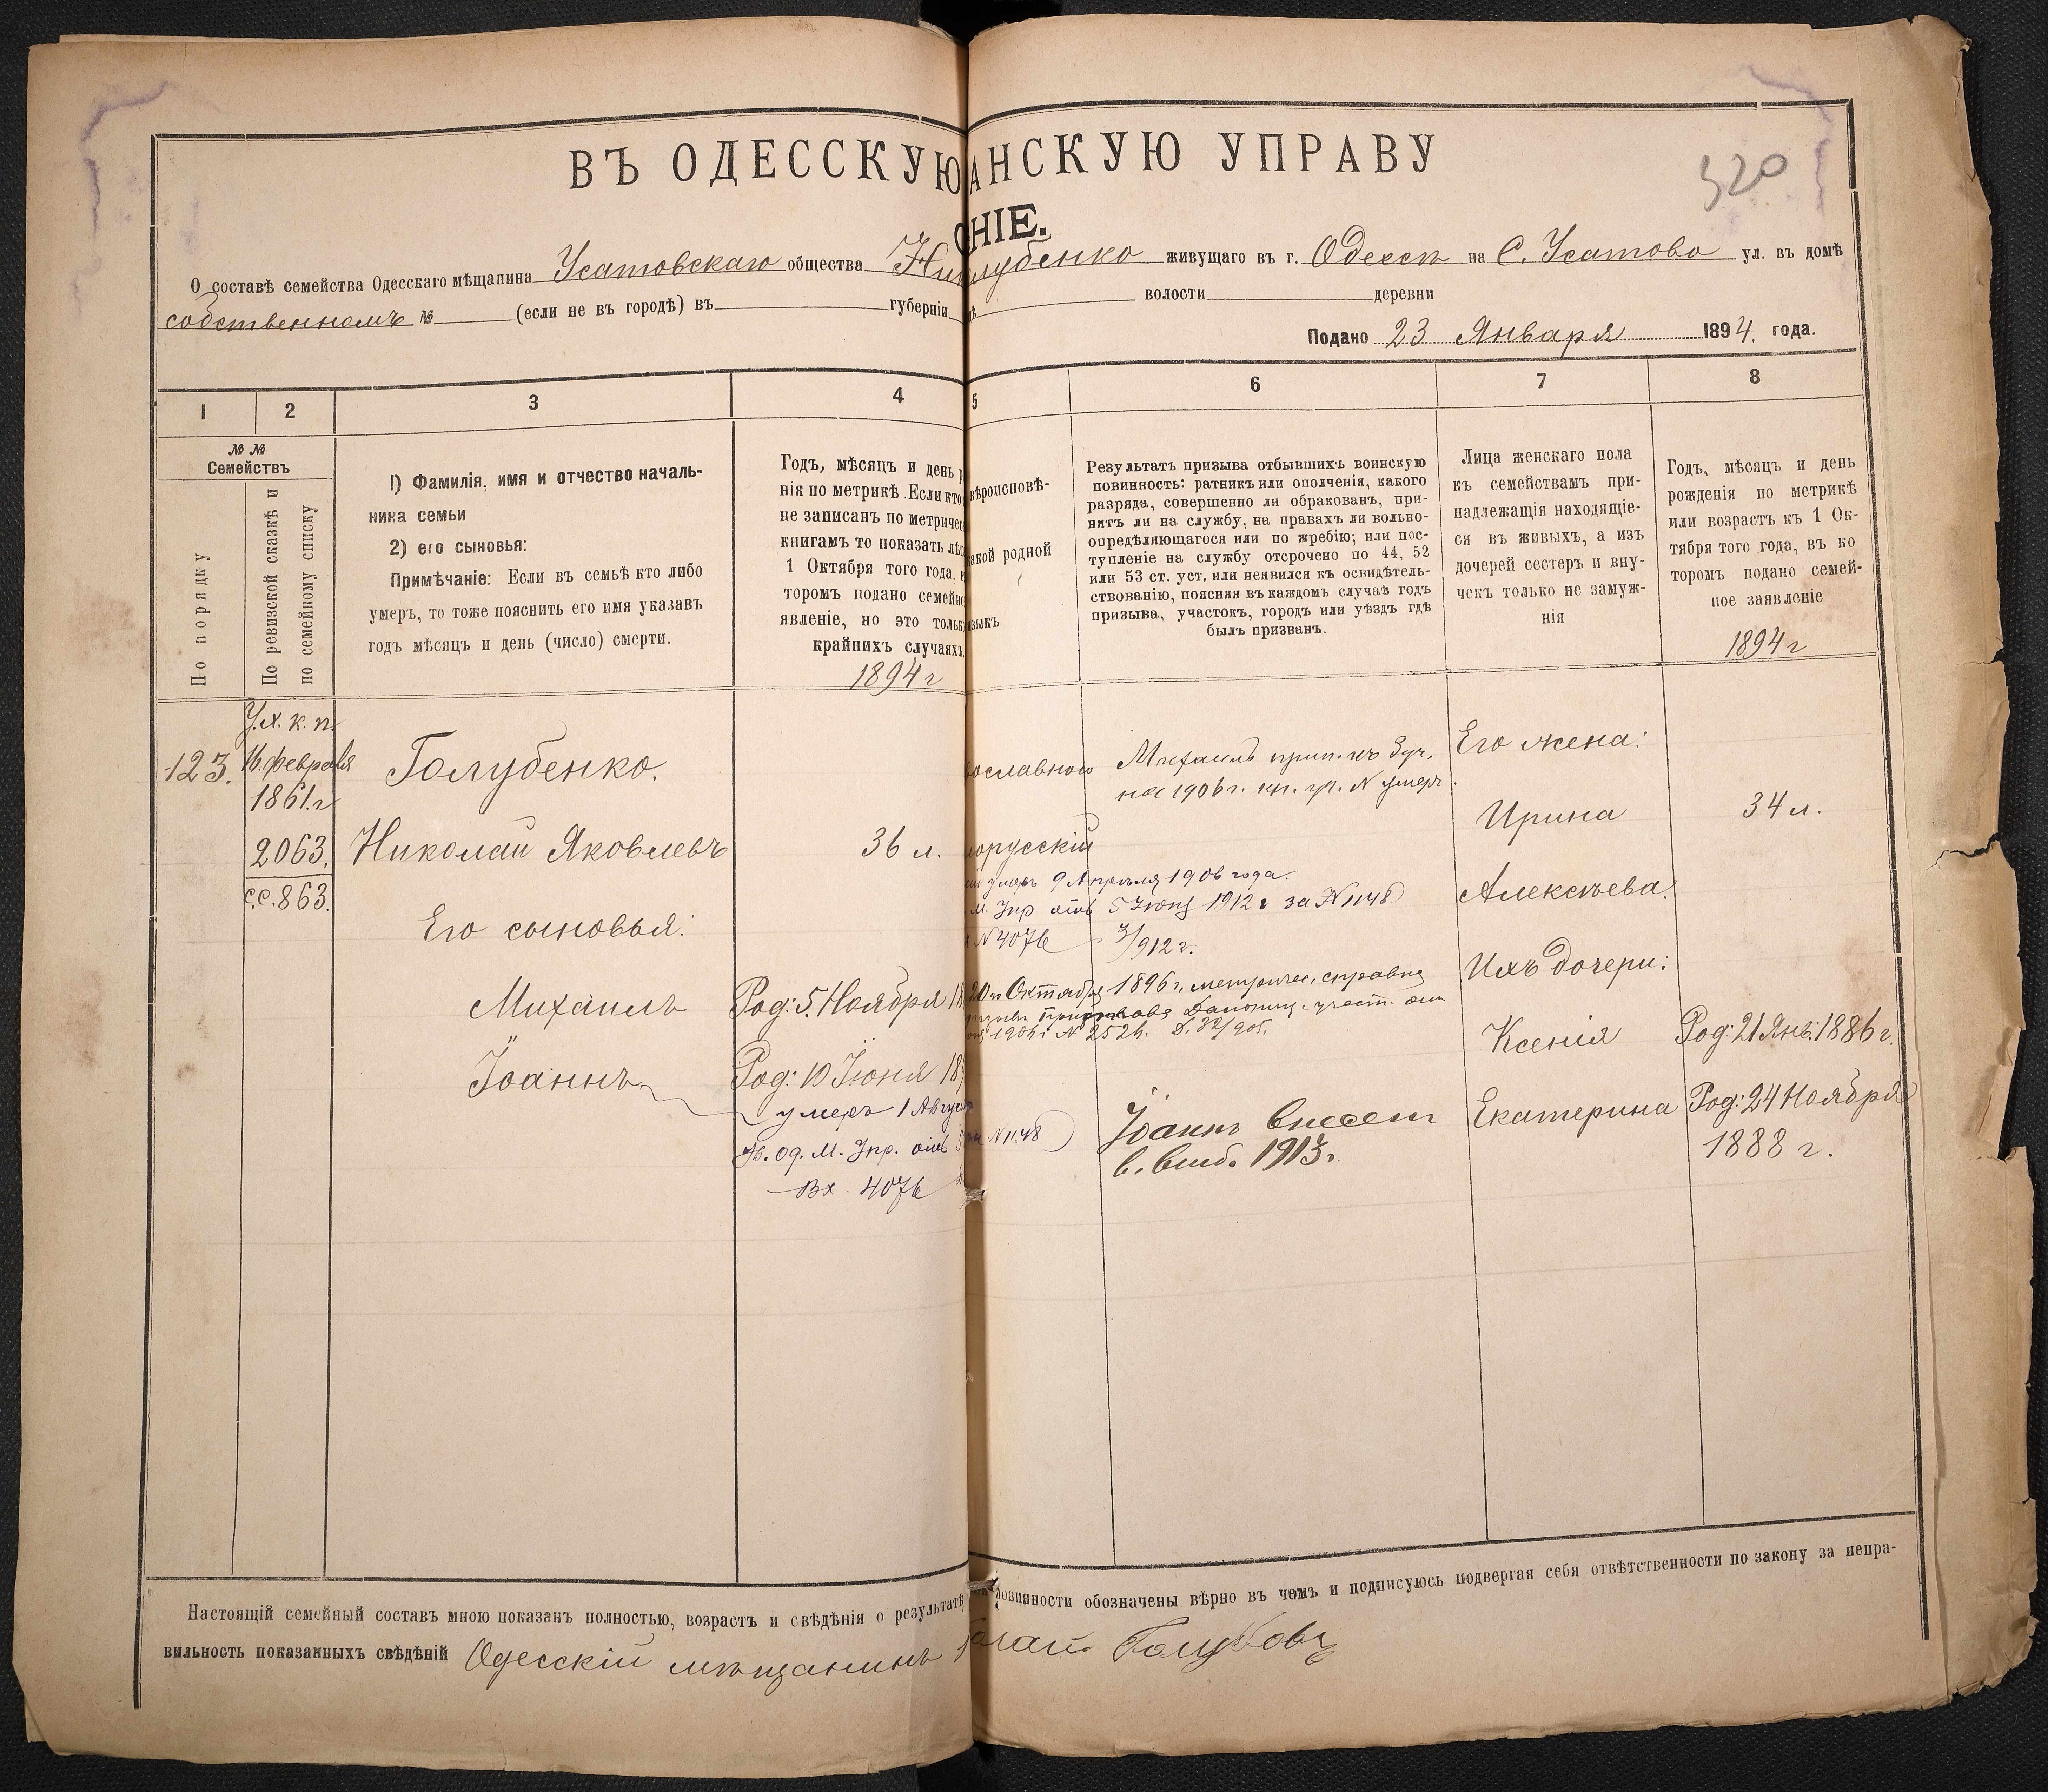 ВЪ ОДЕССКУЮ АНСКУЮ УПРАВУ
320
НІЕ.
О составѣ семейства Одесскаго мѣщанина Усатовскаго общества Ни лубенко живущаго въ г. Одессѣ на С. Усатово ул. въ домѣ
собственномъ № (если не въ городѣ) въ губерніи волости деревни
Подано 23 Января 1894. года.
1 2 3 4 5 6 7 8
№ №
Семействъ
По порядку
По ревизской сказкѣ и
по семейному списку
1) Фамилія, имя и отчество началь-
ника семьи
2) его сыновья:
Примѣчаніе: Если въ семьѣ кто либо
умеръ, то тоже пояснить его имя указавъ
годъ мѣсяцъ и день (число) смерти.
Годъ, мѣсяцъ и день р
нія по метрикѣ. Если кто
не записанъ по метричес
книгамъ то показать лѣт
1 Октября того года, в
торомъ подано семейно
явленіе, но это только
крайнихъ случаяхъ.
1894 г
вѣроисповѣ-
акой родной
зыкъ
Результатъ призыва отбывшихъ воинскую
повинность: ратникъ или ополченія, какого
разряда, совершенно ли обракованъ, при-
нятъ ли на службу, на правахъ ли вольно-
опредѣляющагося или по жребію; или пос-
тупленіе на службу отсрочено по 44, 52
или 53 ст. уст. или неявился къ освидѣтель-
ствованію, поясняя въ каждомъ случаѣ годъ
призыва, участокъ, городъ или уѣздъ гдѣ
былъ призванъ.
Лица женскаго пола
къ семействамъ при-
надлежащія находящіе-
ся въ живыхъ, а изъ
дочерей сестеръ и вну-
чекъ только не замуж-
нія
Годъ, мѣсяцъ и день
рожденія по метрикѣ
или возрастъ къ 1 Ок-
тября того года, въ ко
торомъ подано семей-
ное заявленіе
1894 г
У. х. к. п.
123. 16. февраля
1861. г
2063.
С.С. 863.
Голубенко.
Николай Яковлевъ 36 л.
Его сыновья:
Михаилъ Род: 5. Ноября 18
Іоаннъ Род: 10 Іюня 18
умеръ 1 Август
Од. М. Упр. отъ 5 за N 1148)
Вх. 4076
ославного
орусскій
умеръ 9 Апрѣля 1906 года.
М. Упр отъ 5 Іюня 1912 г за N 1148)
N 4076 /912 г.
20 и Октября 1896 г. метричес. справка
участ. отъ
1904 г N 2524.
Михаилъ прип. къ
на 1906 г. кн. N умеръ.
Іоаннъ
1913 г.
Его жена:
Ирина 34 л.
Алексѣева.
Ихъ дочери:
Ксенія Род: 21 Янв: 1886 г.
Екатерина Род: 24 Ноября
1888 г.
Настоящій семейный составъ мною показанъ полностью, возрастъ и свѣдѣнія о результатѣ повинности обозначены вѣрно въ чемъ и подписуюсь подвергая себя отвѣтственности по закону за непра-
вильность показанныхъ свѣдѣній Одесскій мѣщанинъ лай Голубовъ